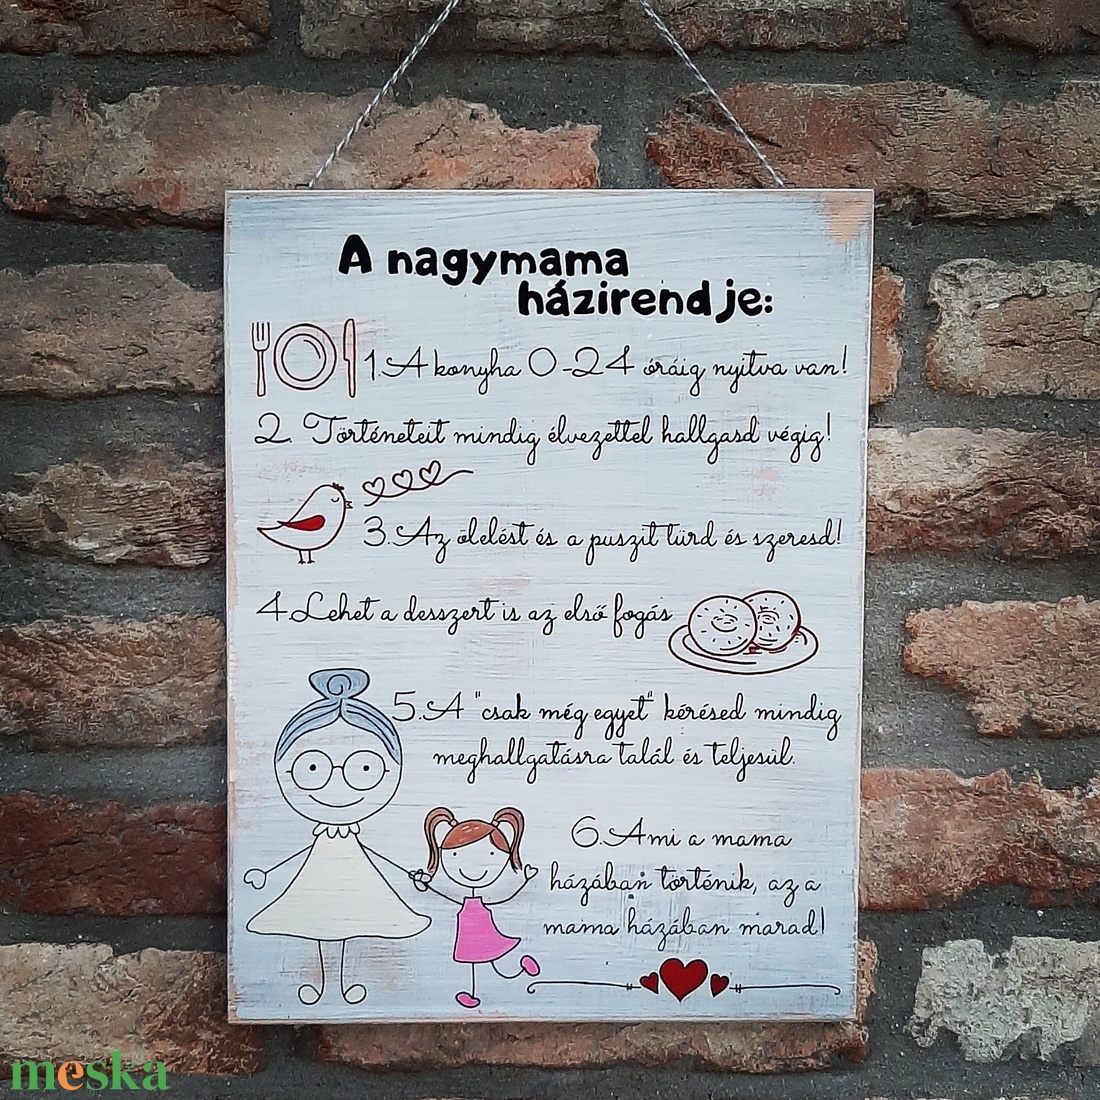 A nagymama
házirendje:
1. A konyha 0-24 óráig nyitva van!
2. Történeteit mindig élvezettel hallgasd végig!
3. Az ölelést és a puszit tűrd és szeresd!
4. Lehet a desszert is az első fogás
5. A "csak még egyet" kérésed mindig
meghallgatásra talál és teljesül.
6. Ami a mama
házában történik, az a
mama házában marad!
meska